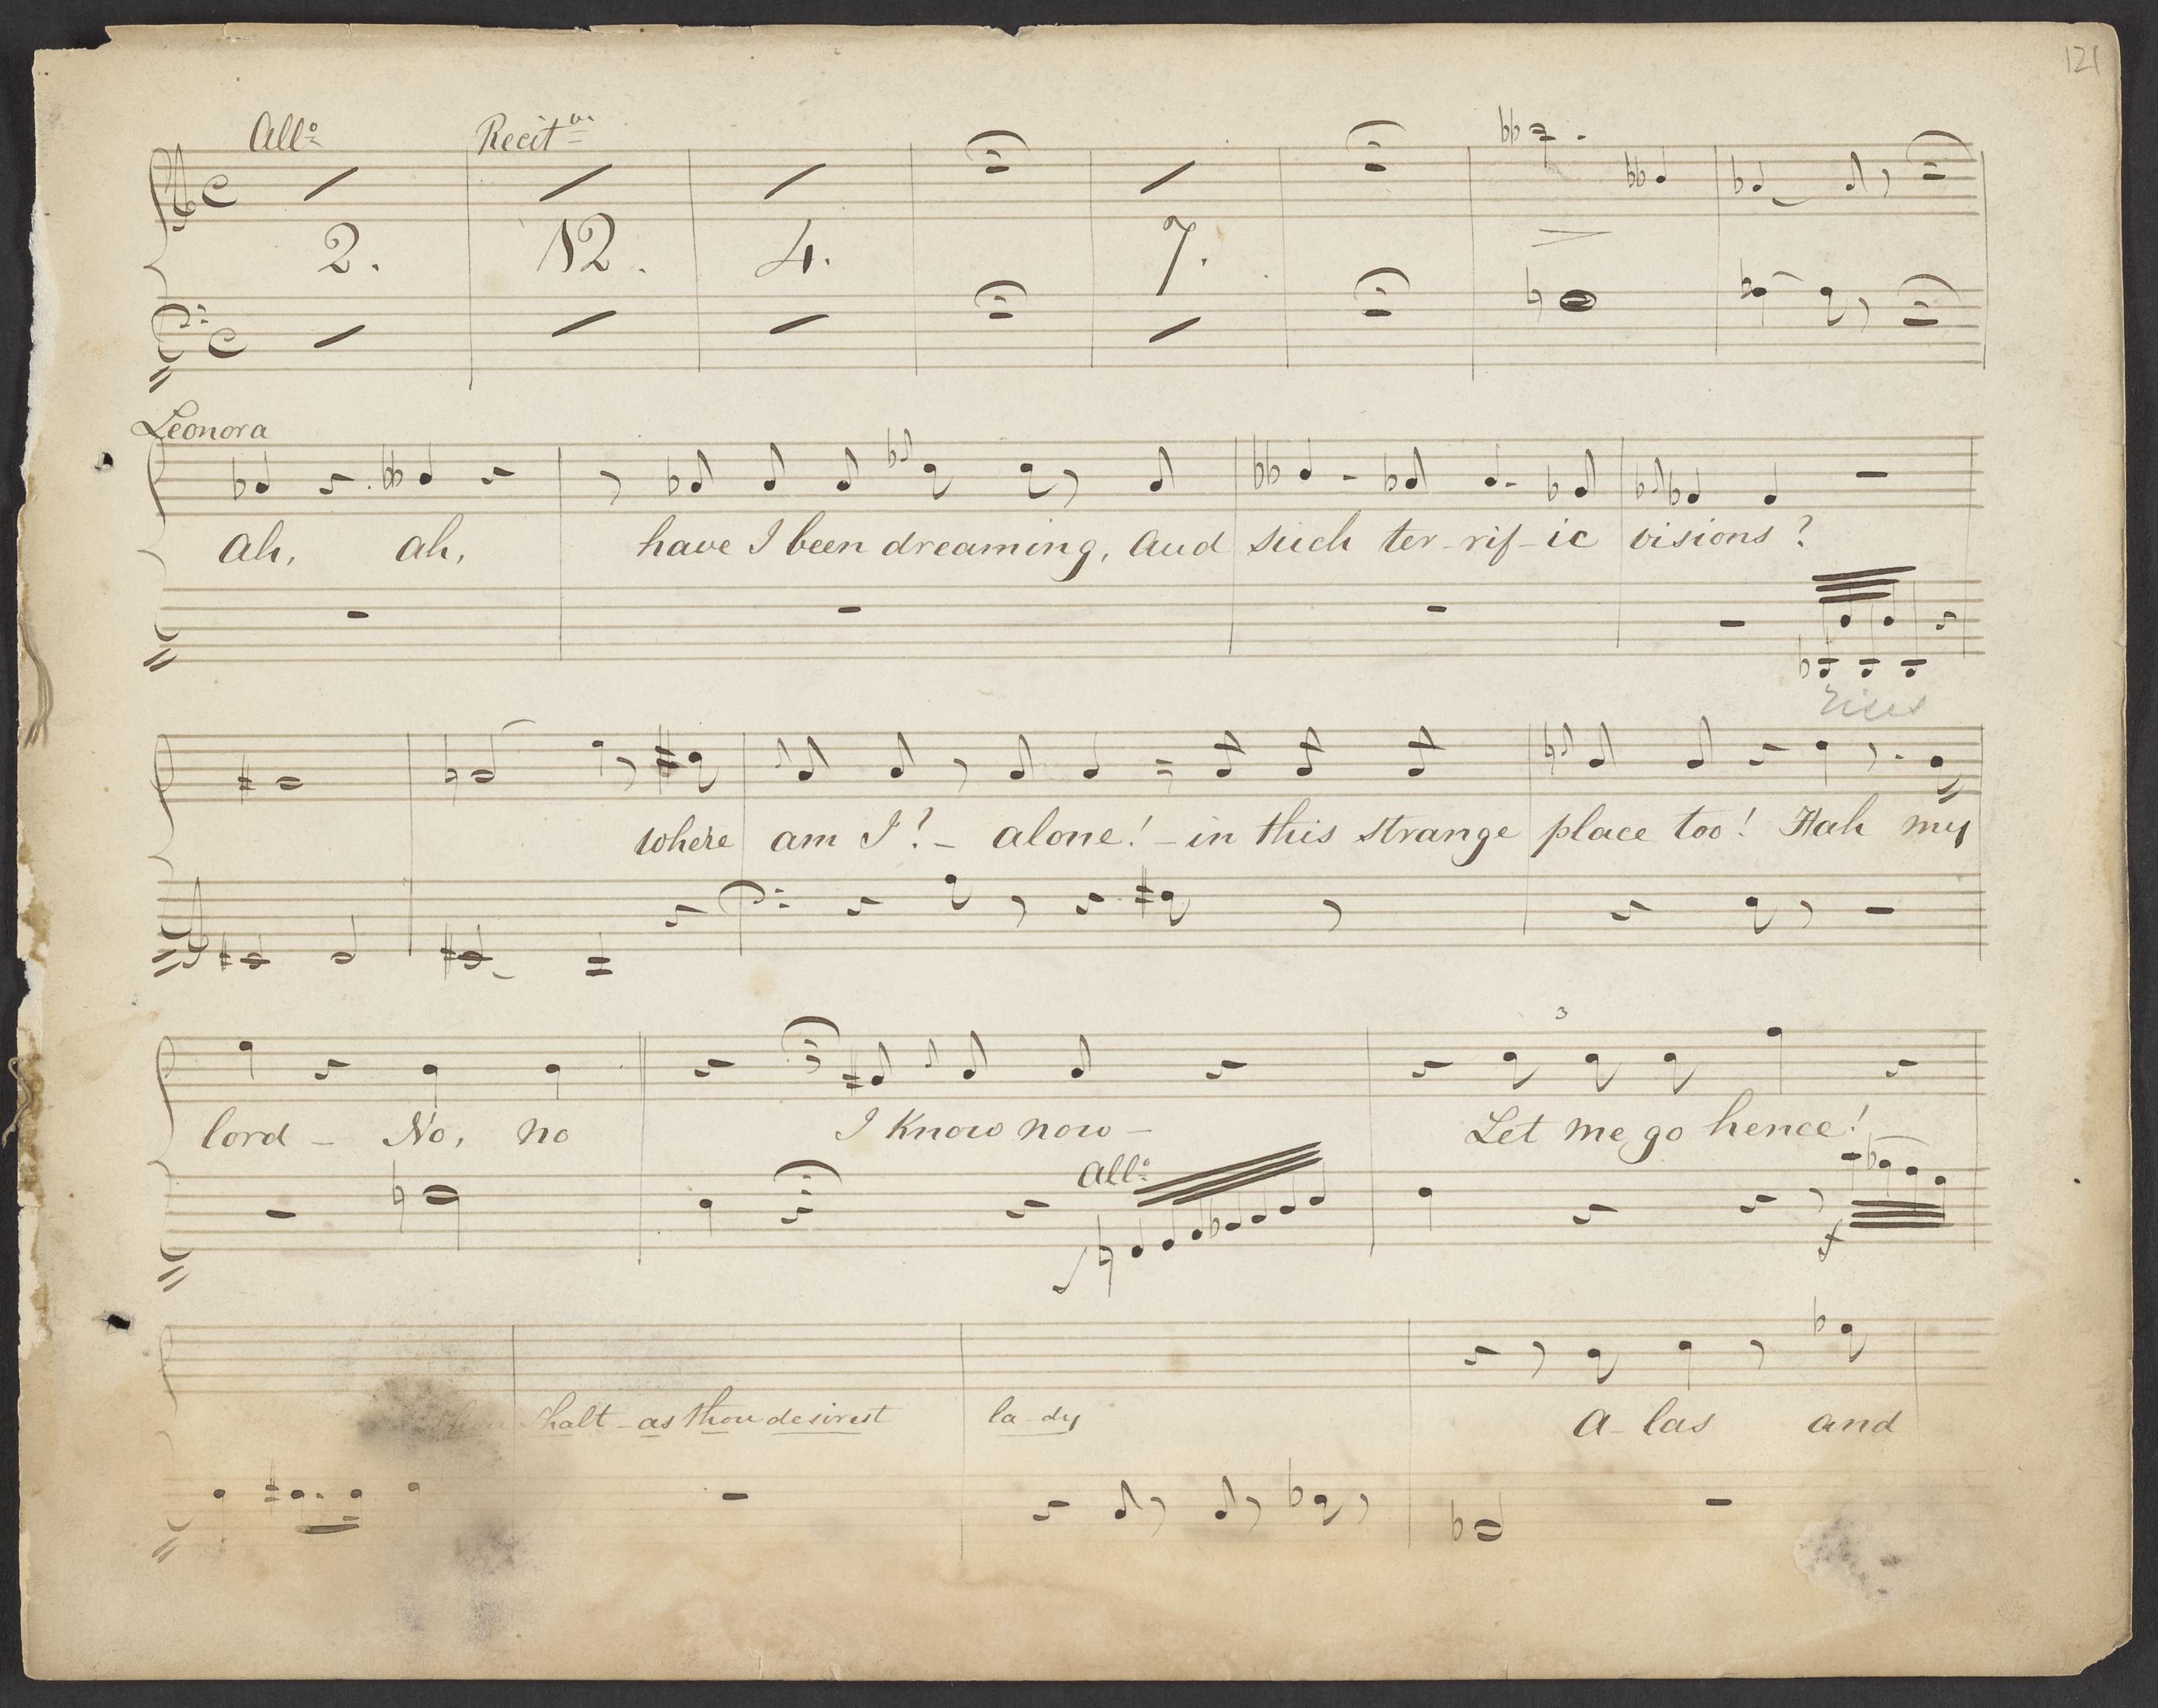 121
All° Recit
2. 12. 4. 7.
Leonora
Ah, ah, have I been dreaming, and such ter-rif-ic visions?
where am I? - alone! - in this strange place too! Hah my
3
lord - No, no I know now - Let me go hence!
All°
f
shalt - as thou desirest la-dy A-las and